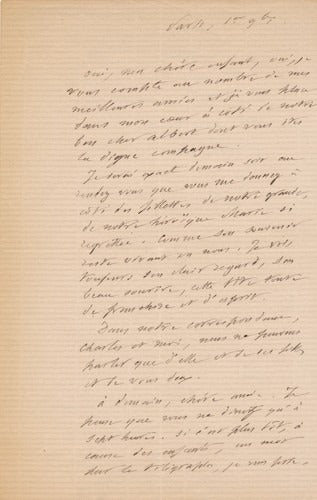 Paris, 1er 9bre
oui, ma chère enfant, oui, je
vous compte au nombre de mes
meilleures amies et je vous place
dans mon cœur à côté de notre
bon cher Albert dont vous êtes
la digne compagne.
Je serai exact demain soir au
rendez vous que vous me donnez à
côté des fillettes de notre grande,
de notre héroïque Marie si
regrettée. Comme son souvenir
reste vivant en nous. Je vois
toujours son clair regard, son
beau sourire, cette tête toute
de franchise et d'esprit.
Dans notre correspondance,
Charles et moi, nous ne pouvons
parler que d'elle et de ses filles
et de vous deux.
à demain, chère amie. Je
pense que vous ne dînez qu'à
sept heures. Si c'est plus tôt, à
cause des enfants, un mot
dans le télégraphe, je vous prie.